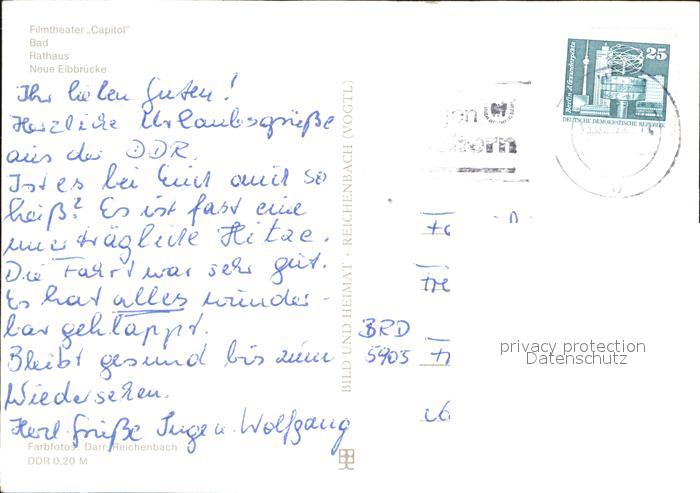 Filmtheater „Capitol"
Bad
Rathaus
Neue Elbbrücke
Ihr lieben Guten!
Herzliche Urlaubsgrüße
aus der DDR.
Ist es bei Euch auch so
heiß? Es ist fast eine
unerträgliche Hitze.
Die Fahrt war sehr gut.
Es hat alles wunder-
bar geklappt.
Bleibt gesund bis zum
Wiedersehen.
Herzl. Grüße Inge u. Wolfgang
Farbfotos: Darr, Reichenbach
DDR 0,20 M
BILD UND HEIMAT · REICHENBACH (VOGTL)
25
Berlin, Alexanderplatz
DEUTSCHE DEMOKRATISCHE REPUBLIK
BRD
5905
privacy protection
Datenschutz